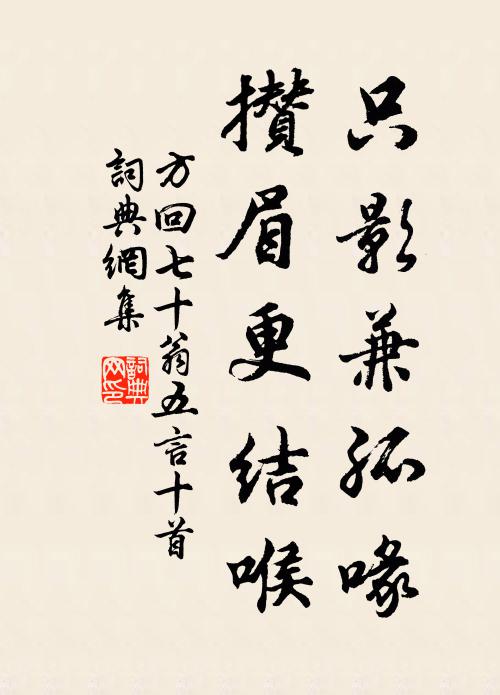 只影兼孤喙
攢眉更結喉
方回七十翁五言十首
詞典網集
詞典網印